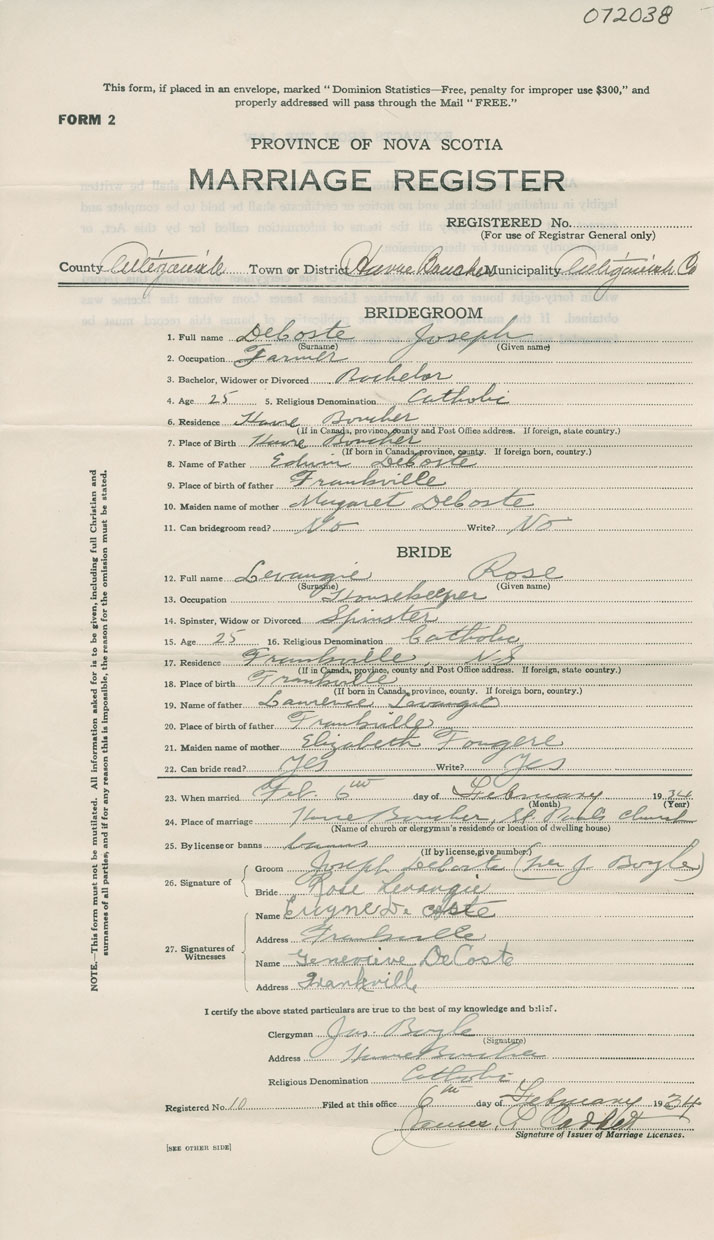 072038
This form, if placed in an envelope, marked "Dominion Statistics—Free, penalty for improper use $300," and
properly addressed will pass through the Mail "FREE."
FORM 2
PROVINCE OF NOVA SCOTIA
MARRIAGE REGISTER
REGISTERED No.
(For use of Registrar General only)
County Antigonish Town or District Havre Boucher Municipality Antigonish Co
BRIDEGROOM
1. Full name DeCoste Joseph
(Surname) (Given name)
2. Occupation Farmer
3. Bachelor, Widower or Divorced Bachelor
4. Age 25 5. Religious Denomination Catholic
6. Residence Havre Boucher
(If in Canada, province, county and Post Office address. If foreign, state country.)
7. Place of Birth Havre Boucher
(If born in Canada, province, county. If foreign born, country.)
8. Name of Father Edwin DeCoste
9. Place of birth of father Frankville
10. Maiden name of mother Margaret DeCoste
11. Can bridegroom read? No Write? No
BRIDE
12. Full name Levangie Rose
(Surname) (Given name)
13. Occupation Housekeeper
14. Spinster, Widow or Divorced Spinster
15. Age 25 16. Religious Denomination Catholic
17. Residence Frankville, N.S
(If in Canada, province, county and Post Office address. If foreign, state country.)
18. Place of birth Frankville
(If born in Canada, province, county. If foreign born, country.)
19. Name of father Laurence Levangie
20. Place of birth of father Frankville
21. Maiden name of mother Elizabeth Fougere
22. Can bride read? Yes Write? Yes
23. When married Feb. 6th day of February 1934
(Month) (Year)
24. Place of marriage Havre Boucher, St Pauls Church
(Name of church or clergyman's residence or location of dwelling house)
25. By license or banns banns
(If by license, give number.)
26. Signature of
Groom Joseph DeCoste (per J. Boyle)
Bride Rose Levangie
27. Signatures of Witnesses
Name De Coste
Address Frankville
Name Genevieve DeCoste
Address Frankville
I certify the above stated particulars are true to the best of my knowledge and belief.
Clergyman Jas. Boyle
(Signature)
Address Havre Boucher
Religious Denomination Catholic
Registered No. 10 Filed at this office 6th day of February 1934
James
Signature of Issuer of Marriage Licenses.
[SEE OTHER SIDE]
NOTE.—This form must not be mutilated. All information asked for is to be given, including full Christian and
surnames of all parties, and if for any reason this is impossible, the reason for the omission must be stated.